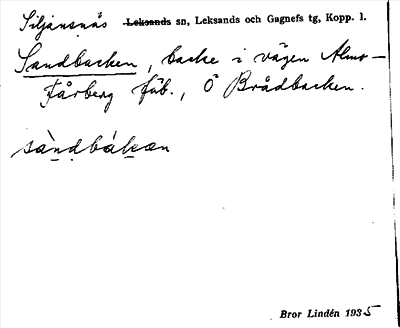 Siljansnäs Leksands sn, Leksands och Gagnefs tg, Kopp. l.
Sandbacken, backe i vägen Almo-
Fårberg fäb., Ö Brådbacken.
sàndbákan
Bror Lindén 1935